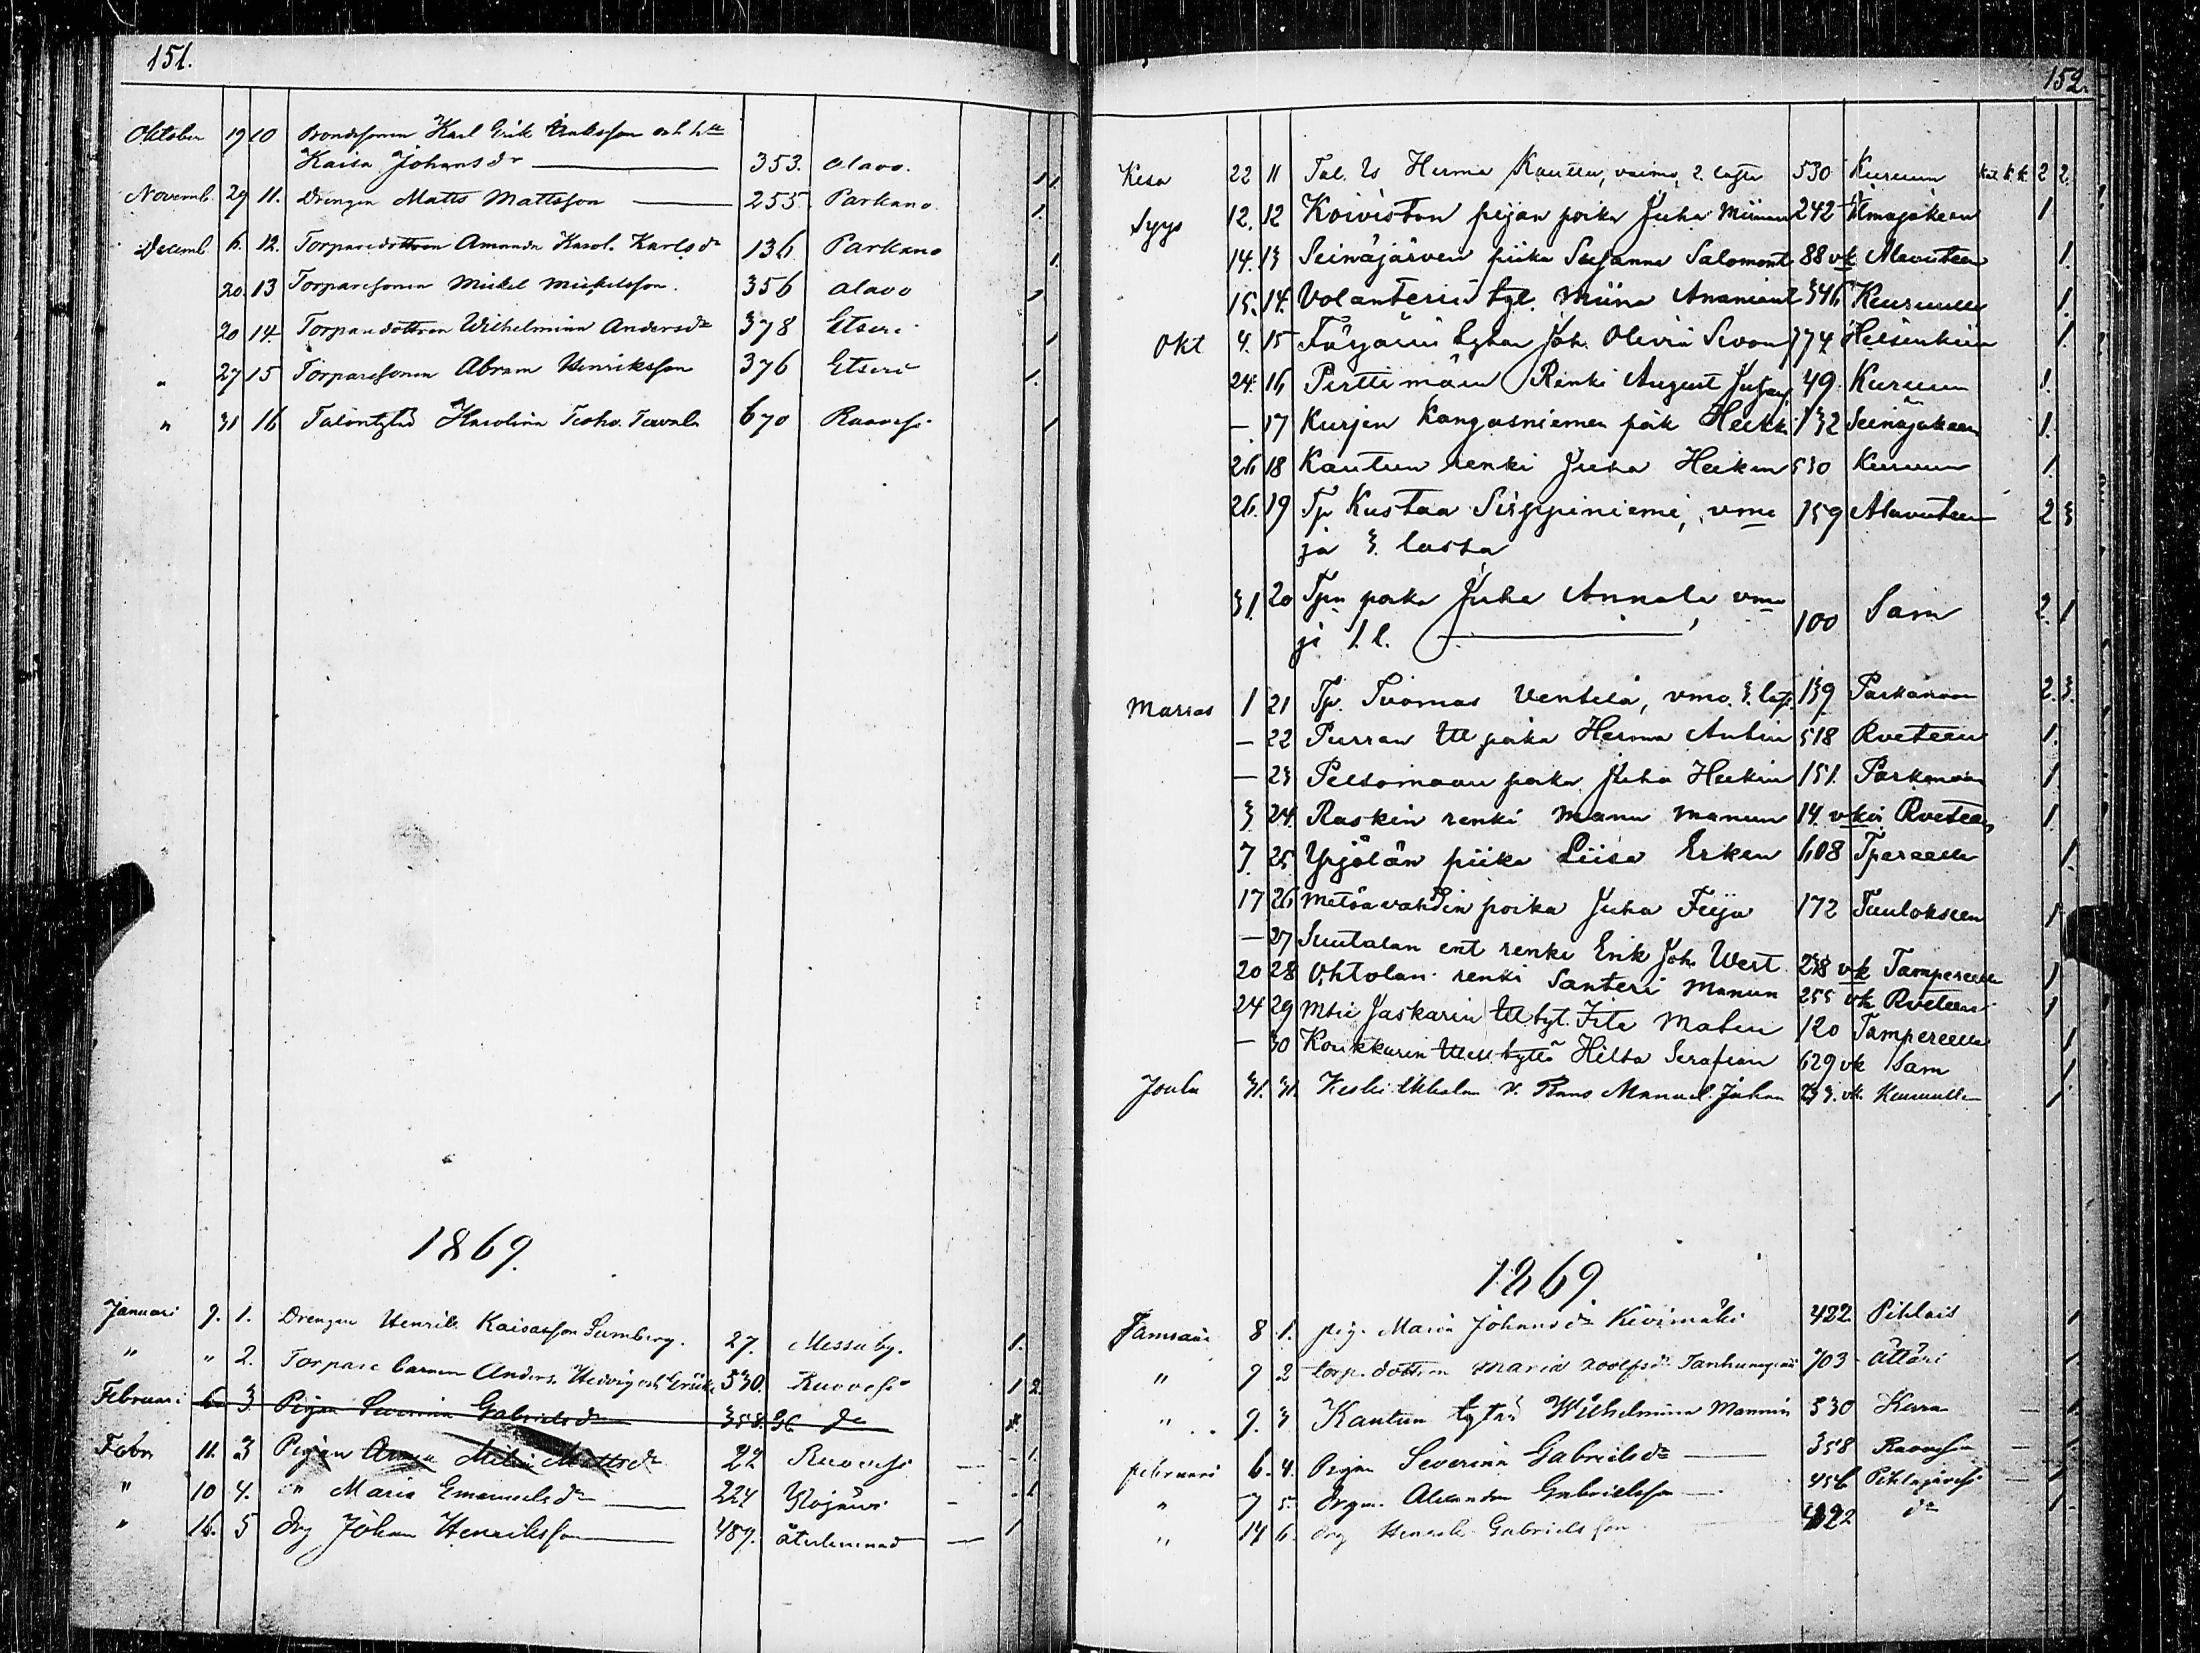 151.
Oktober 19 10 Bondesonen Karl Erik och h
Kaisa Johansdr 353. Alavo. 1 1.
Novemb. 29 11. Drengen Matts Mattsson 255 Parkano. 1.
Decemb 6. 12. Torparedottren Amanda Karol. Karlsdr 136 Parkano 1.
20. 13 Torparesonen Mickel Mickelsson. 356 Alavo 1
20 14. Torparedottren Wilhelmina Andersdr 378 Etseri 1
" 27 15 Torparesonen Abram Henriksson 376 Etseri 1.
" 31 16 Talontytär Karolina 670 Ruovesi 1
1869.
Januari 9. 1. Drengen Henrik Kaisasson Sumberg. 27. Messuby. 1.
" " 2. Torpare barnen Anders, Hedvig och 530. Ruovesi 1 2.
Februari 6 3. Pigan Severina Gabrielsdr 358. do 1
Febr 11. 3 Pigan Anna Milia Mattsdr 22 Ruovesi 1.
" 10 4. " Maria Emanuelsdr 224 Ylöjärvi 1
" 16. 5 Drg Johan Henriksson 489. återlemnad 1
152.
Kesä 22 11 Tal. Herman Kauttu, vaimo, 2. lasta 530 Kuruun 2 2.
Syys 12. 12 Koiviston piijan poika Juha Miinan 242 Ilmajokeen 1
14. 13 Seinäjärven piika Susanna Salomont 88 vk Alavuteen 1.
15. 14. Volanterin tyt. Miina Ananiant 346 Keuruulle 1.
Okt 4. 15 Färjärin tytär Joh. Olivia 774 Helsinkiin 1.
24. 16 Perttimäen Renki August 49. Kuruun 1.
— 17 Kurjen Kangasniemen poik Heikki 132 Seinäjokeen 1.
26 18 Kautun renki Juha Heikin 530 Kuruun 1
26. 19 Tp Kustaa Sirppiniemi, vmo 159 Alavuteen 2 3
ja 3. lasta
31. 20 Tpn poika Juha Annala vmo 100 Sam 2. 1
ja 1. l.
Marras 1 21 Tp. Tuomas Ventelä, vmo. 3. laps 139 Parkanoon 2. 3.
— 22 Purran poika Herman Antin 518 Rveteen 1.
— 23 Peltomaan poika Juha Heikin 151. Parkanoon 1
3 24. Raskin renki Manu Manun 14. vk Rveteen 1.
7. 25 Yrjölän piika Liisa Erken 608 Tpereelle 1.
17 26 Metsävahdin poika Juha 172 Tuulokseen 1
— 27 Suutalan ent renki Erik Joh. Wert 238 vk Tampereelle 1
20 28 Ohtolan renki Santeri Manun 255 vk Rveteen 1
24 29 Jaskarin tyt. Fita Matin 120 Tampereelle 1
— 30 Koukkarin tyttö Hilta Serafian 629 vk Sam 1.
Joulu 31. 31. Manuel Juhan vk. Keuruulle 1
1869
Jamsaari 8 1. pig. Maria Johansdr Kivimäki 422 Pihlais 1
" 9 2 torp. dottren Maria Adolfsdr 703 Ättäri 1
" 9. 3 Kautun tytär Wilhelmina Mannin 530 Kuru 1
februari 6. 4. Pigan Severina Gabrielsdr 358 Ruovesi 1.
" 7 5. Drgn. Alexander Gabrielsson 456 Pihlajavesi 1
" 14 6. drg Henrik Gabrielsson do 1.